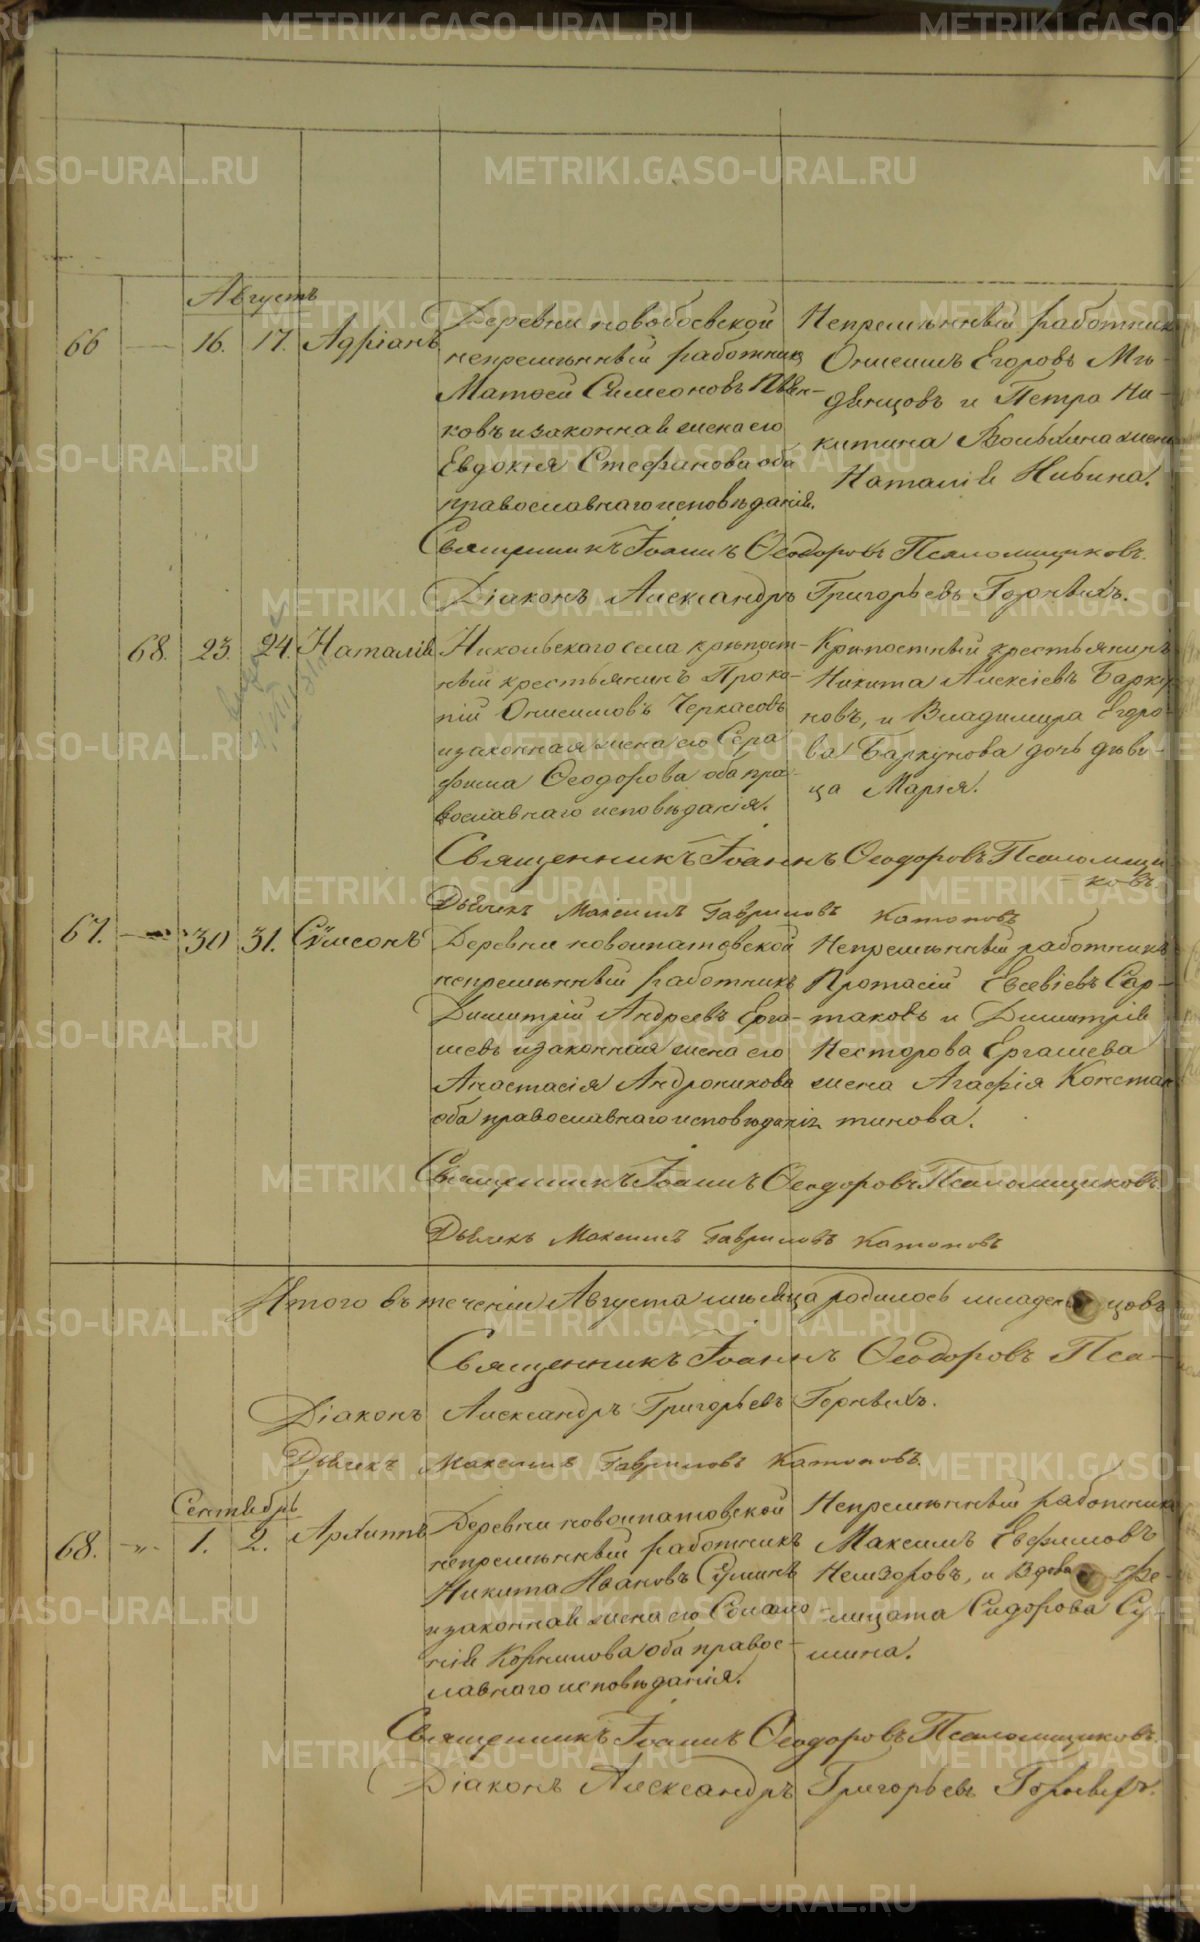 Августъ
66 16. 17. Адріанъ
Деревни новобоевской
непремѣнный работникъ
Матѳей Симеоновъ
ковъ и законная жена его
Евдокія Стефанова оба
православнаго исповѣданія.
Непремѣнный работникъ
Онисимъ Егоровъ Мѣ-
двѣнцовъ и Петра Ни-
китина жена
Наталія
Священникъ Іоаннъ Ѳеодоровъ Псаломщиковъ.
Діаконъ Александръ Григорьевъ Горныхъ.
68. 23. 24. Наталія
Никольскаго села крѣпост-
ный крестьянинъ Проко-
пій Онисимовъ Черкасовъ
и законная жена его Сера
фима Ѳеодорова оба пра-
вославнаго исповѣданія.
Крѣпостный крестьянинъ
Никита Алексіевъ Барку
новъ, и Владимира Егоро-
ва Баркунова дочь дѣви-
ца Марія.
Священникъ Іоаннъ Ѳеодоровъ Псаломщи
ковъ.
Дьячекъ Максимъ Гавриловъ Катоновъ
67. 30 31. Сѵмеонъ
Деревни новоипатовской
непремѣнный работникъ
Димитрій Андреевъ Ерга-
шевъ и законная жена его
Анастасія Андроникова
оба православнаго исповѣданія
Непремѣнный работникъ
Протасій Евсевіевъ Сар-
таковъ и Димитрія
Несторова Ергашева
жена Агафія Констан
тинова.
Священникъ Іоаннъ Ѳеодоровъ Псаломщиковъ.
Дьячекъ Максимъ Гавриловъ Катоновъ
Итого въ теченіи Августа мѣсяца родилось младенцовъ
Священникъ Іоаннъ Ѳеодоровъ Пса-
Діаконъ Александръ Григорьевъ Горныхъ.
Дьячекъ Максимъ Гавриловъ Катоновъ.
Сентябрь
68. 1. 2. Архиппъ
Деревни новоипатовской
непремѣнный работникъ
Никита Ивановъ Суминъ
и законная жена его Соломо
нія Корнилова оба правос-
лавнаго исповѣданія.
Непремѣнный работникъ
Максимъ Евфимовъ
Немзоровъ, и Вдова Фе-
лицата Сидорова Су-
мина.
Священникъ Іоаннъ Ѳеодоровъ Псаломщиковъ.
Діаконъ Александръ Григорьевъ Горныхъ.
METRIKI.GASO-URAL.RU